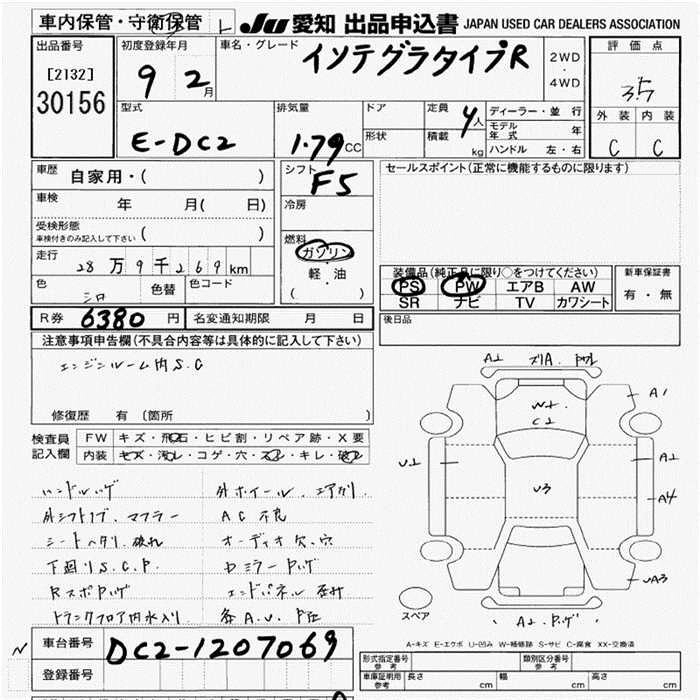 車内保管・守衛保管
JU 愛知 出品申込書 JAPAN USED CAR DEALERS ASSOCIATION
出品番号
[2132]
30156
初度登録年月
9 2月
車名・グレード
インテグラタイプR
2WD
・
4WD
評価点
3.5
外装 内装
C C
型式
E-DC2
排気量
1.79CC
ドア
形状
定員 4人
積載 kg
ディーラー・並行
モデル年式 年
ハンドル 左・右
車歴 自家用・( )
車検 年 月( 日)
受検形態
車検付きのみ記入して下さい ( )
走行 28万9千269km
色 シロ 色替 色コード
シフト
F5
冷房
燃料
ガソリン
・
軽・油
( )
セールスポイント(正常に機能するものに限ります)
装備品(純正品に限り○をつけてください)
PS PW エアB AW
SR ナビ TV カワシート
新車保証書
有・無
R券 6380円 名変通知期限 月 日
後日品
注意事項申告欄(不具合内容等は具体的に記入して下さい)
エンジンルーム内S.C
修復歴 有 (箇所 )
検査員記入欄
FW キズ・飛石・ヒビ割・リペア跡・X要
内装 キズ・汚レ・コゲ・穴・スレ・キレ・破レ
ハンドルハゲ
外シフトノブ、マフラー
シートヘタリ、破れ
下廻りS.C.P
RスポPハゲ
トランクフロア内水入り
外ホイール、エアクリ
AC不良
オーディオ欠、穴
ドミラーPハゲ
エンドパネル歪み
A1
W2
C2
A1
U2
U3
A2
A4
UA3
スペア
A2.Pハゲ
A-キズ E-エクボ U-凹み W-補修跡 S-サビ C-腐食 XX-交換済
車台番号 DC2-1207069
登録番号
形式指定番号
参考
類別区分番号
参考
車庫証明用
参考
長さ cm 幅 cm 高さ cm